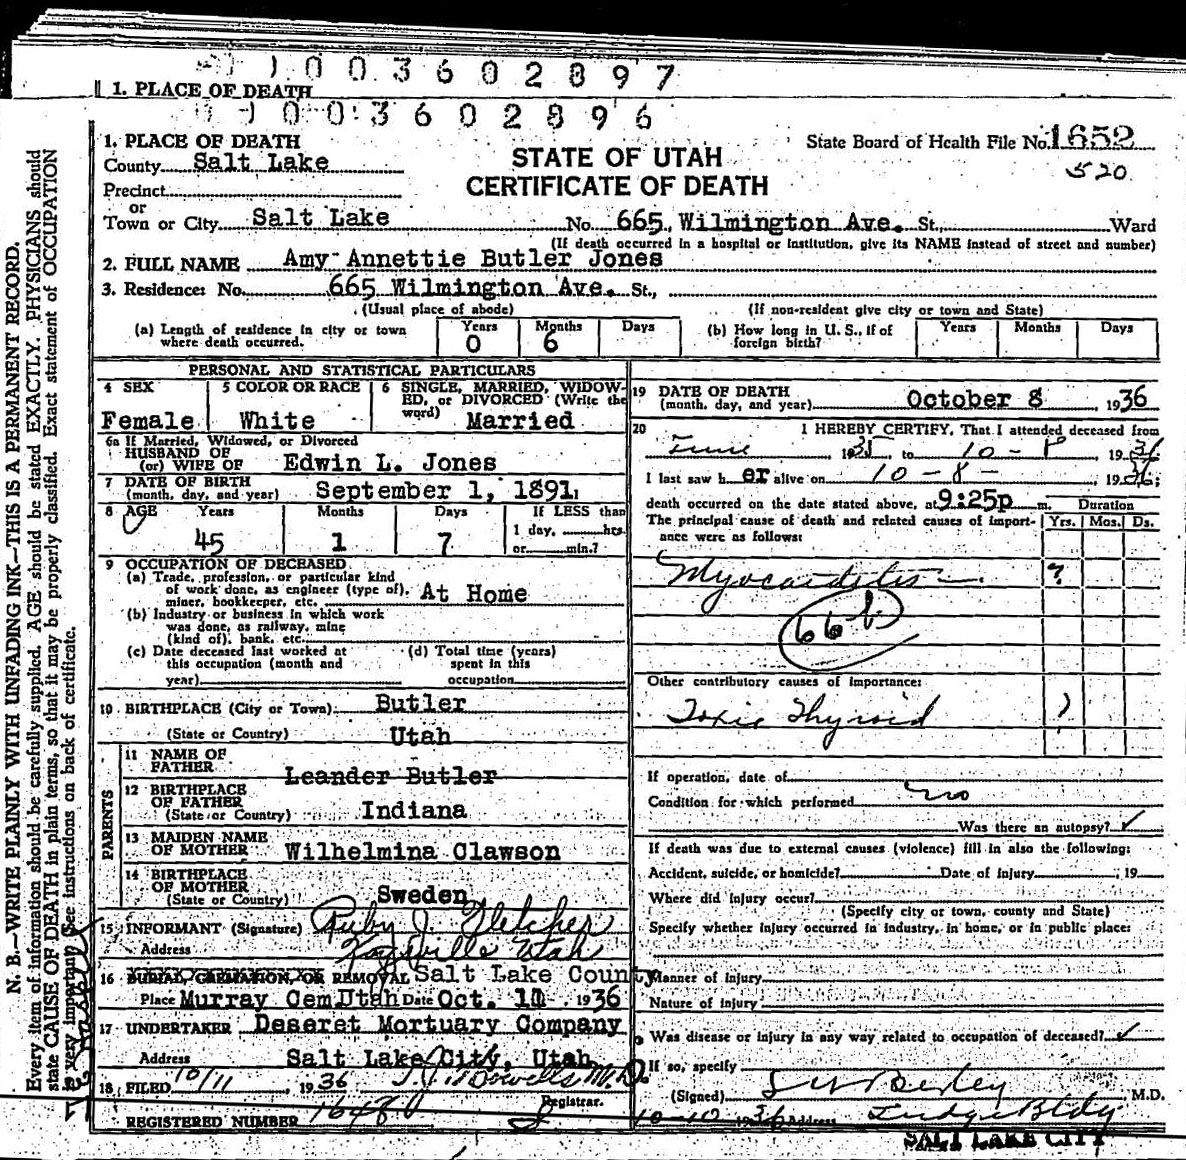 1 0 0 3 6 0 2 8 9 7
1. PLACE OF DEATH
1 0 0 3 6 0 2 8 9 6
N. B.—WRITE PLAINLY WITH UNFADING INK—THIS IS A PERMANENT RECORD.
Every item of information should be carefully supplied. AGE should be stated EXACTLY. PHYSICIANS should
state CAUSE OF DEATH in plain terms, so that it may be properly classified. Exact statement of OCCUPATION
is very important. (See instructions on back of certificate.
1. PLACE OF DEATH
County Salt Lake
Precinct
or
Town or City Salt Lake
STATE OF UTAH
CERTIFICATE OF DEATH
State Board of Health File No. 1652
520
No. 665 Wilmington Ave. St., Ward
(If death occurred in a hospital or institution, give its NAME instead of street and number)
2. FULL NAME Amy Annettie Butler Jones
3. Residence: No. 665 Wilmington Ave. St.,
(Usual place of abode) (If non-resident give city or town and State)
(a) Length of residence in city or town where death occurred. Years 0 Months 6 Days
(b) How long in U. S., if of foreign birth? Years Months Days
PERSONAL AND STATISTICAL PARTICULARS
4 SEX Female
5 COLOR OR RACE White
6 SINGLE, MARRIED, WIDOWED, or DIVORCED (Write the word) Married
6a If Married, Widowed, or Divorced
HUSBAND OF
(or) WIFE OF Edwin L. Jones
7 DATE OF BIRTH
(month, day, and year) September 1, 1891
8 AGE Years 45 Months 1 Days 7
If LESS than
1 day, hrs.
or min.?
9 OCCUPATION OF DECEASED
(a) Trade, profession, or particular kind
of work done, as engineer (type of),
miner, bookkeeper, etc. At Home
(b) Industry or business in which work
was done, as railway, mine
(kind of), bank, etc.
(c) Date deceased last worked at
this occupation (month and
year)
(d) Total time (years)
spent in this
occupation
10 BIRTHPLACE (City or Town) Butler
(State or Country) Utah
PARENTS
11 NAME OF
FATHER Leander Butler
12 BIRTHPLACE
OF FATHER
(State or Country) Indiana
13 MAIDEN NAME
OF MOTHER Wilhelmina Clawson
14 BIRTHPLACE
OF MOTHER
(State or Country) Sweden
15 INFORMANT (Signature) Ruby J. Fletcher
Address Kaysville Utah
16 BURIAL, CREMATION, OR REMOVAL Salt Lake County
Place Murray Cem Utah Date Oct. 11 1936
17 UNDERTAKER Deseret Mortuary Company
Address Salt Lake City, Utah
18 FILED 10/11 1936 M.D.
Registrar.
REGISTERED NUMBER 1648
19 DATE OF DEATH
(month, day, and year) October 8 1936
20 I HEREBY CERTIFY, That I attended deceased from
June 1935, to 10-8 1936
I last saw h er alive on 10-8- , 1936;
death occurred on the date stated above, at 9:25p m.
The principal cause of death and related causes of importance were as follows:
Duration
Yrs. Mos. Ds.
Myocarditis ?
66b
Other contributory causes of importance:
Toxic Thyroid ?
If operation, date of
Condition for which performed no
Was there an autopsy? ✓
If death was due to external causes (violence) fill in also the following:
Accident, suicide, or homicide? Date of injury , 19
Where did injury occur?
(Specify city or town, county and State)
Specify whether injury occurred in industry, in home, or in public place:
Manner of injury
Nature of injury
Was disease or injury in any way related to occupation of deceased? ✓
If so, specify
(Signed) M.D.
10-10 1936 Address Judge Bldg
SALT LAKE CITY